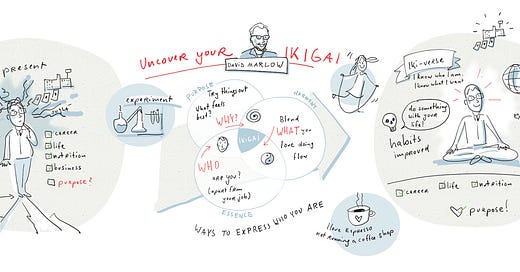 present
career
life
nutrition
business
purpose?
experiment
UNCOVER YOUR IKIGAI
DAVID MARLOW
PURPOSE
Try things out
what feels
best?
WHY?
HARMONY
Blend
WHAT you
love doing
flow
IKIGAI
WHO
are you?
(apart from
your job)
ESSENCE
WAYS TO EXPRESS WHO YOU ARE
I love ESPRESSO
not running a coffee shop
Iki-verse
I know who I am
I know what I want
do something
with your
life!
habits
improved
career
life
nutrition
purpose!